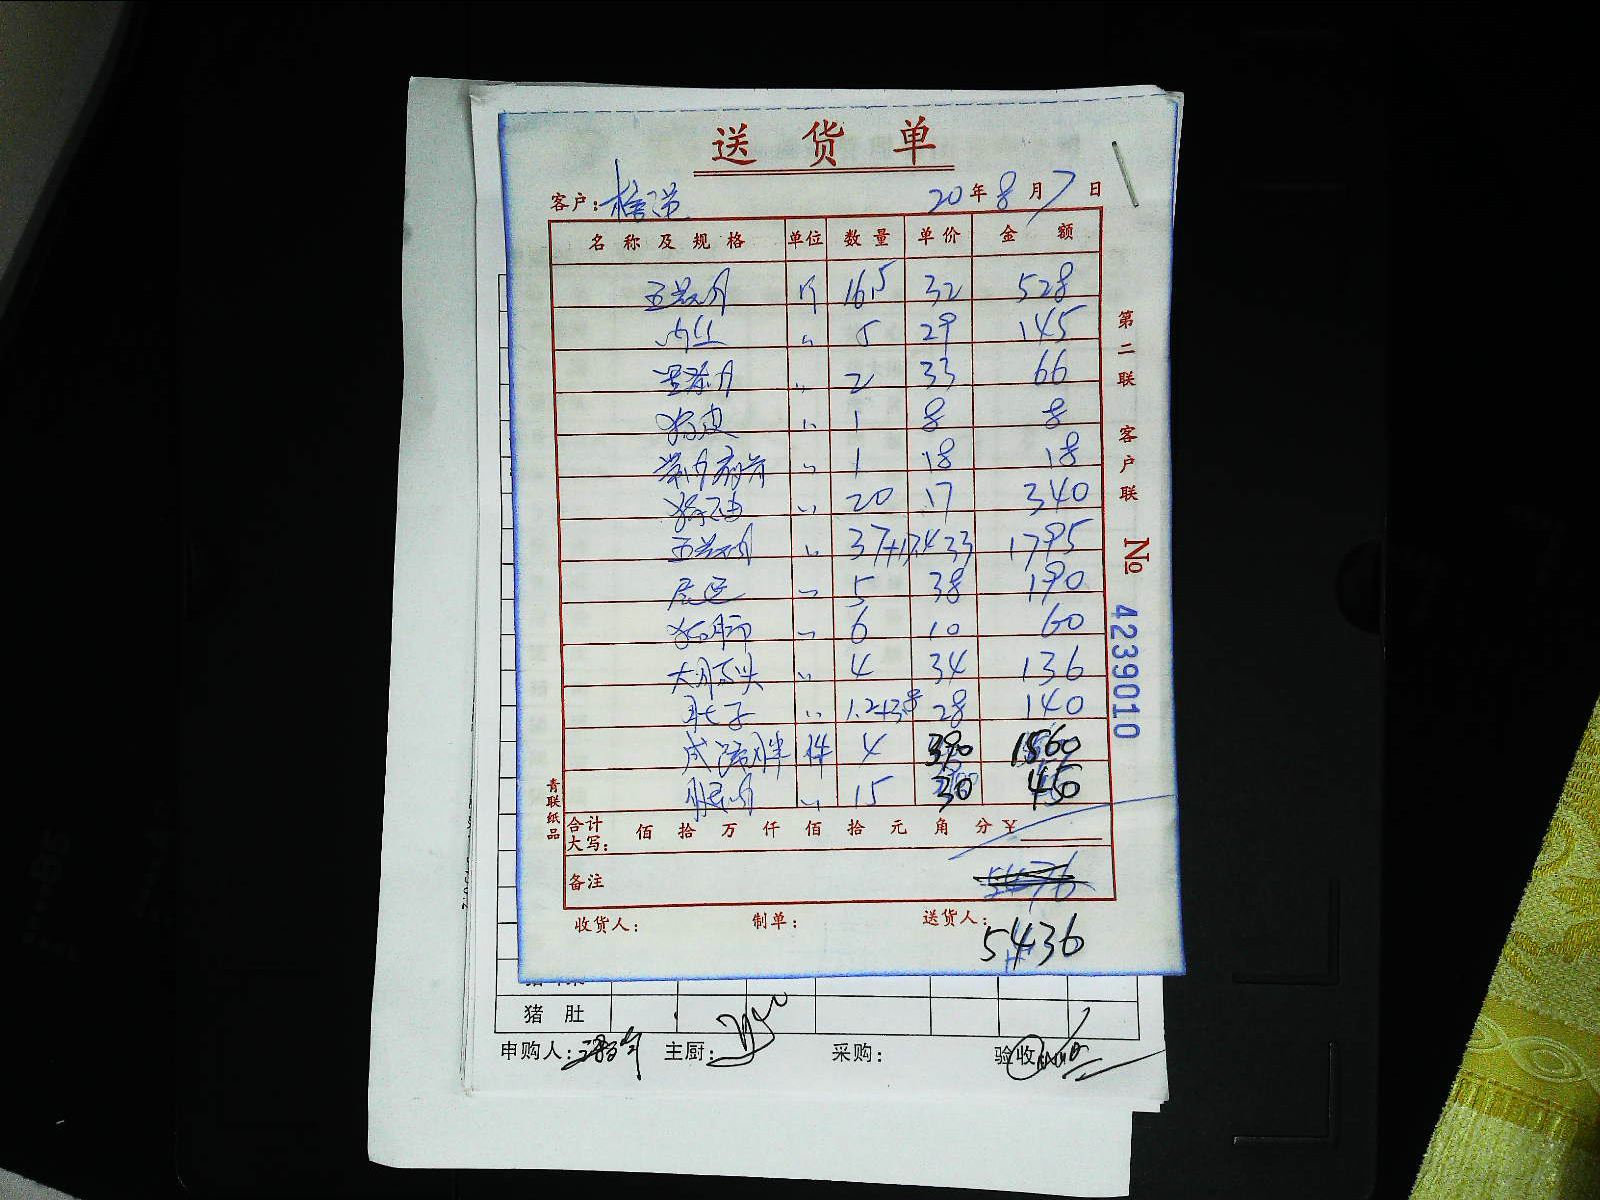 送货单
客户：
20年8月7日
名称及规格 单位 数量 单价 金额
五花肉 斤 16.5 32 528
肉丝 〃 5 29 145
里脊肉 〃 2 33 66
猪皮 〃 1 8 8
带肉扇骨 〃 1 18 18
猪油 〃 20 17 340
五花肉 〃 37+17.4 33 1795
〃 5 38 190
猪肺 〃 6 10 60
大肠头 〃 4 34 136
肚子 〃 1.2+3.8 28 140
件 4 390 1560
〃 15 30 450
合计
大写： 佰 拾 万 仟 佰 拾 元 角 分 ¥
备注 5476
收货人： 制单： 送货人：
5436
第二联 客户联
No 4239010
青联纸品
猪肚
申购人： 主厨： 采购： 验收